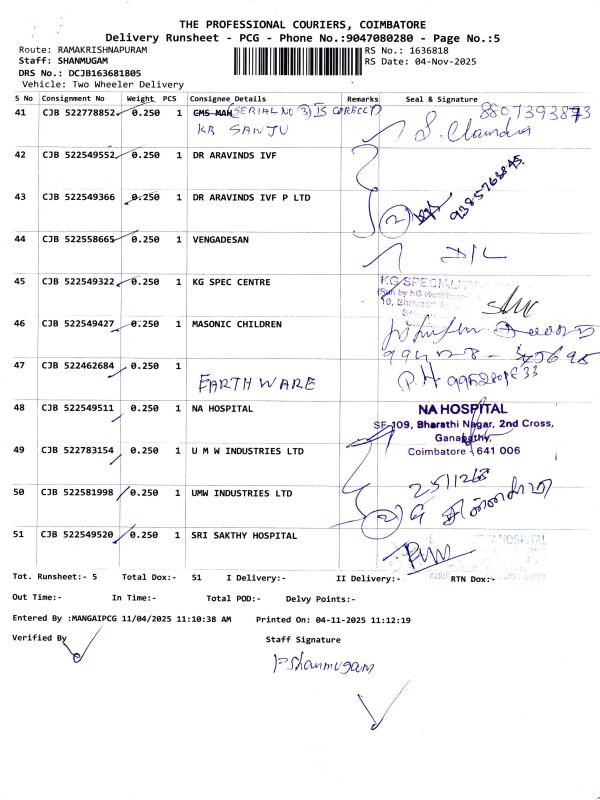 THE PROFESSIONAL COURIERS, COIMBATORE
Delivery Runsheet - PCG - Phone No.:9047080280 - Page No.:5
Route: RAMAKRISHNAPURAM RS No.: 1636818
Staff: SHANMUGAM RS Date: 04-Nov-2025
DRS No.: DCJB163681805
Vehicle: Two Wheeler Delivery
S No Consignment No Weight PCS Consignee Details Remarks Seal & Signature
41 CJB 522778852 0.250 1 GMS MAN (SERIAL NO 3) IS CORRECT) 8807393873
KR SANJU S. Chandra
42 CJB 522549552 0.250 1 DR ARAVINDS IVF
43 CJB 522549366 0.250 1 DR ARAVINDS IVF P LTD 2 9385768845
44 CJB 522558665 0.250 1 VENGADESAN D/L
45 CJB 522549322 0.250 1 KG SPEC CENTRE KG SPECIALITY
46 CJB 522549427 0.250 1 MASONIC CHILDREN
47 CJB 522462684 0.250 1
EARTH WARE P.H
48 CJB 522549511 0.250 1 NA HOSPITAL NA HOSPITAL
SF-109, Bharathi Nagar, 2nd Cross,
Ganapathy,
49 CJB 522783154 0.250 1 U M W INDUSTRIES LTD Coimbatore - 641 006
50 CJB 522581998 0.250 1 UMW INDUSTRIES LTD 2 G
51 CJB 522549520 0.250 1 SRI SAKTHY HOSPITAL HOSPITAL
Tot. Runsheet:- 5 Total Dox:- 51 I Delivery:- II Delivery:- RTN Dox:-
Out Time:- In Time:- Total POD:- Delvy Points:-
Entered By :MANGAIPCG 11/04/2025 11:10:38 AM Printed On: 04-11-2025 11:12:19
Verified By Staff Signature
P Shanmugam